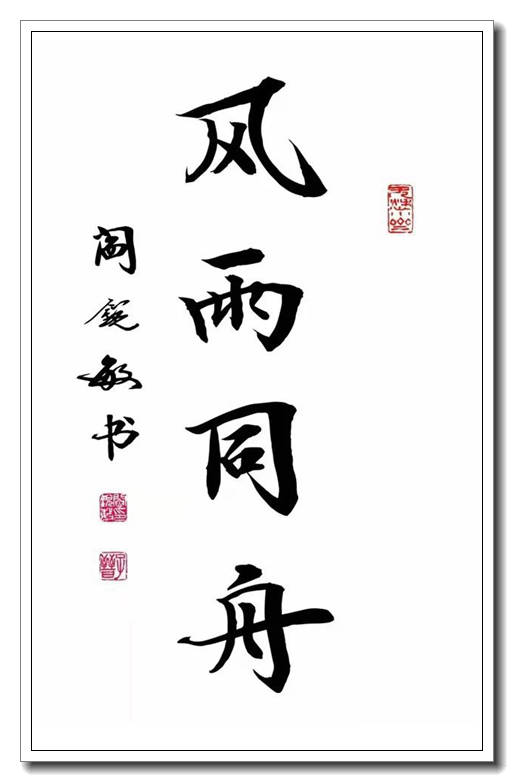 风雨同舟
阎锐敏书